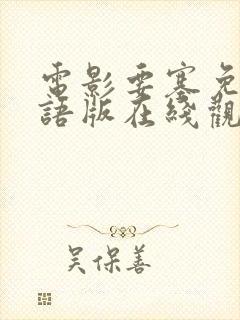 電影要塞免
語版在綫觀
吴保善